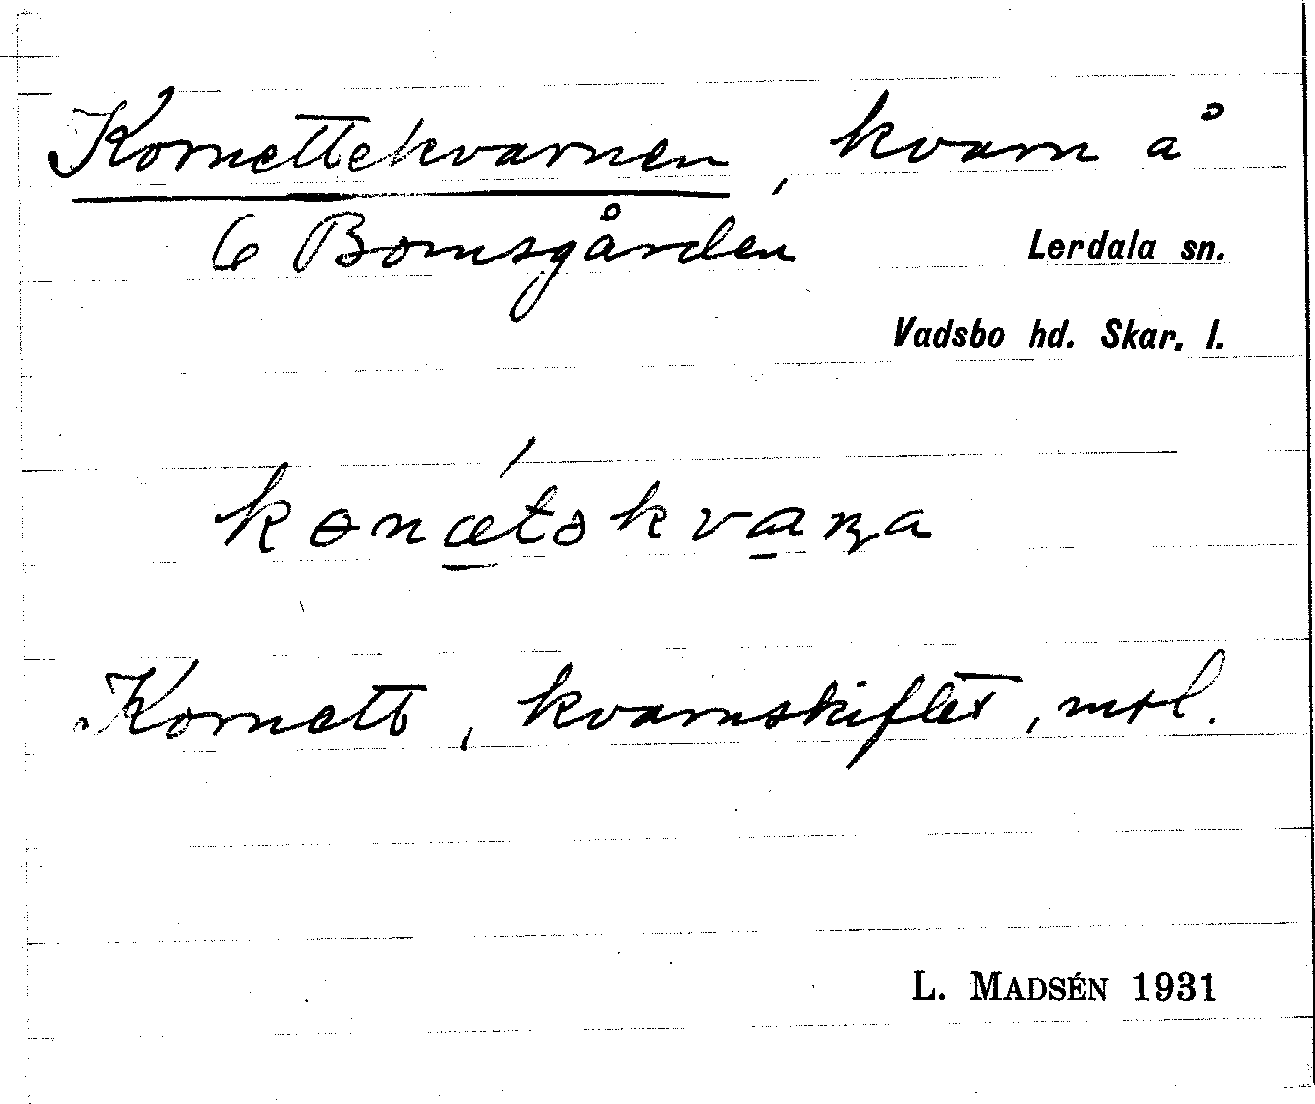 Kornettekvarnen, kvarn å
6 Bomsgården
Lerdala sn.
Vadsbo hd. Skar. l.
Kornett, kvarnskiftet, mtl.
L. MADSÉN 1931